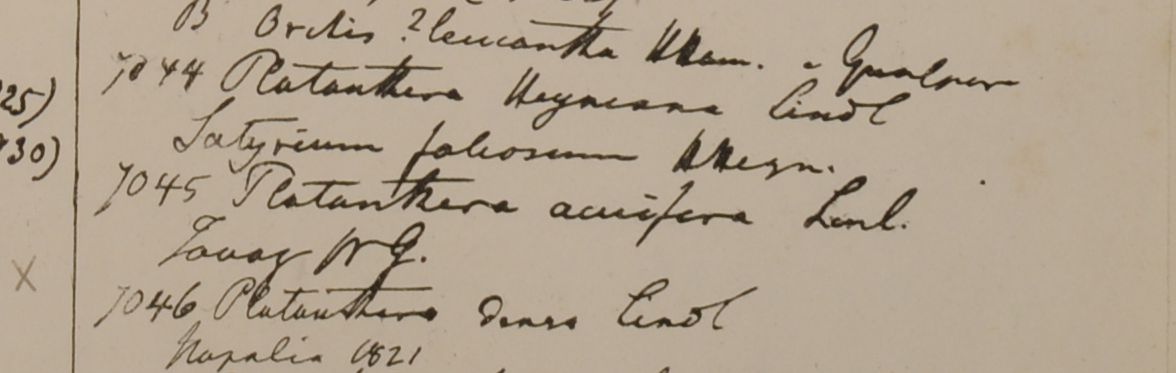 B Orchis ? leucantha HHam. - Gualpur
25) 7044 Platanthera Heyneana Lindl
30) Satyrium foliosum HHeyn.
7045 Platanthera acuifera Linl.
Tavoy WG.
X 7046 Platanthera densa Lindl
Napalia 1821